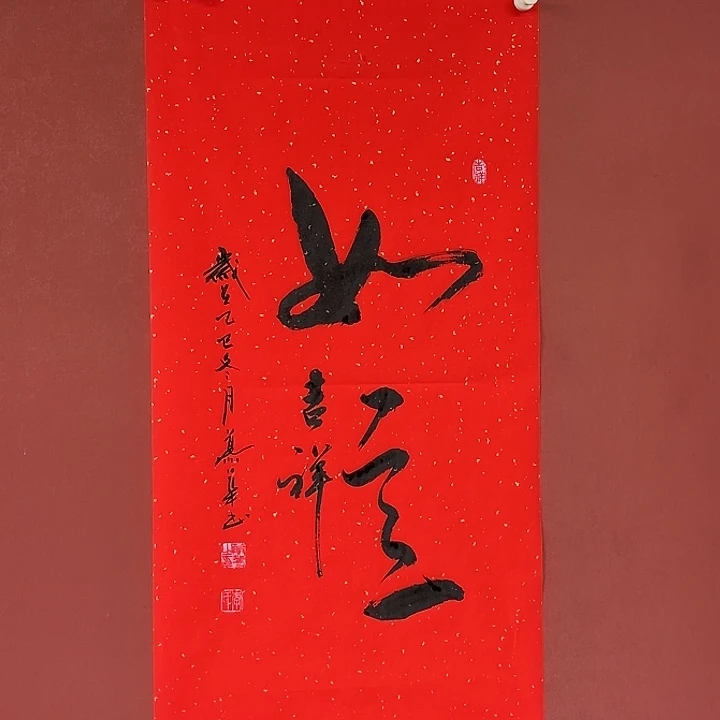 如意
吉祥
歲在乙巳冬月 書
吉祥